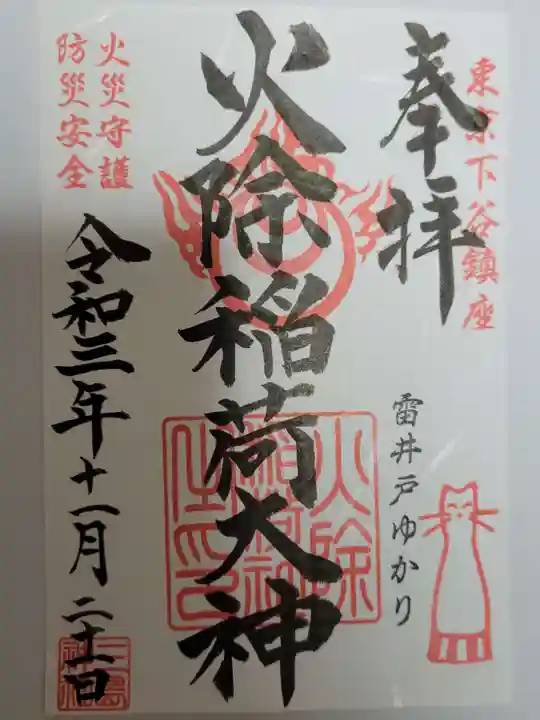 東京下谷鎮座
奉拝
雷井戸ゆかり
火除稲荷大神
火災守護
防災安全
令和三年十一月二十一日
火除
稲荷神
三島
神社